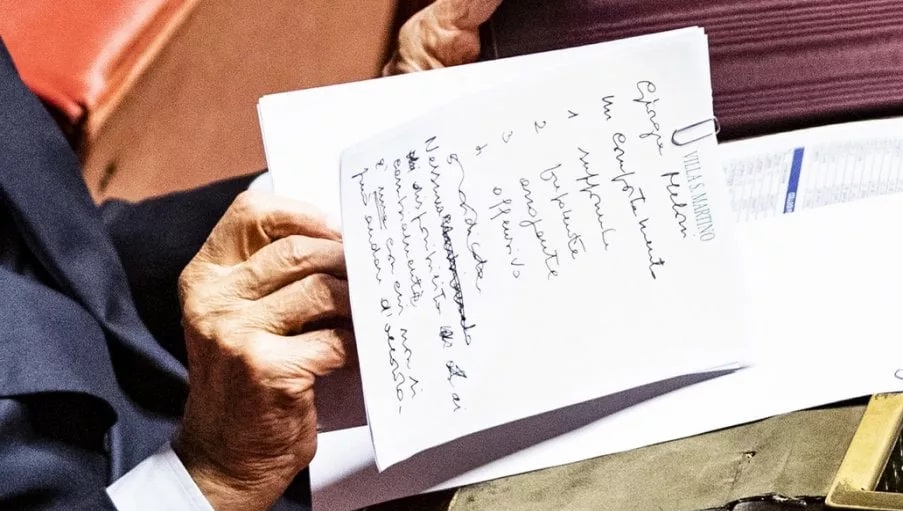 VILLA S. MARTINO
Giorgia Meloni
un comportamento
1 supponente
prepotente
2 arrogante
3 offensivo
4 ridicola
Nessuna
disponibilità ai
cambiamenti
è una con cui non si
può andar d'accordo.